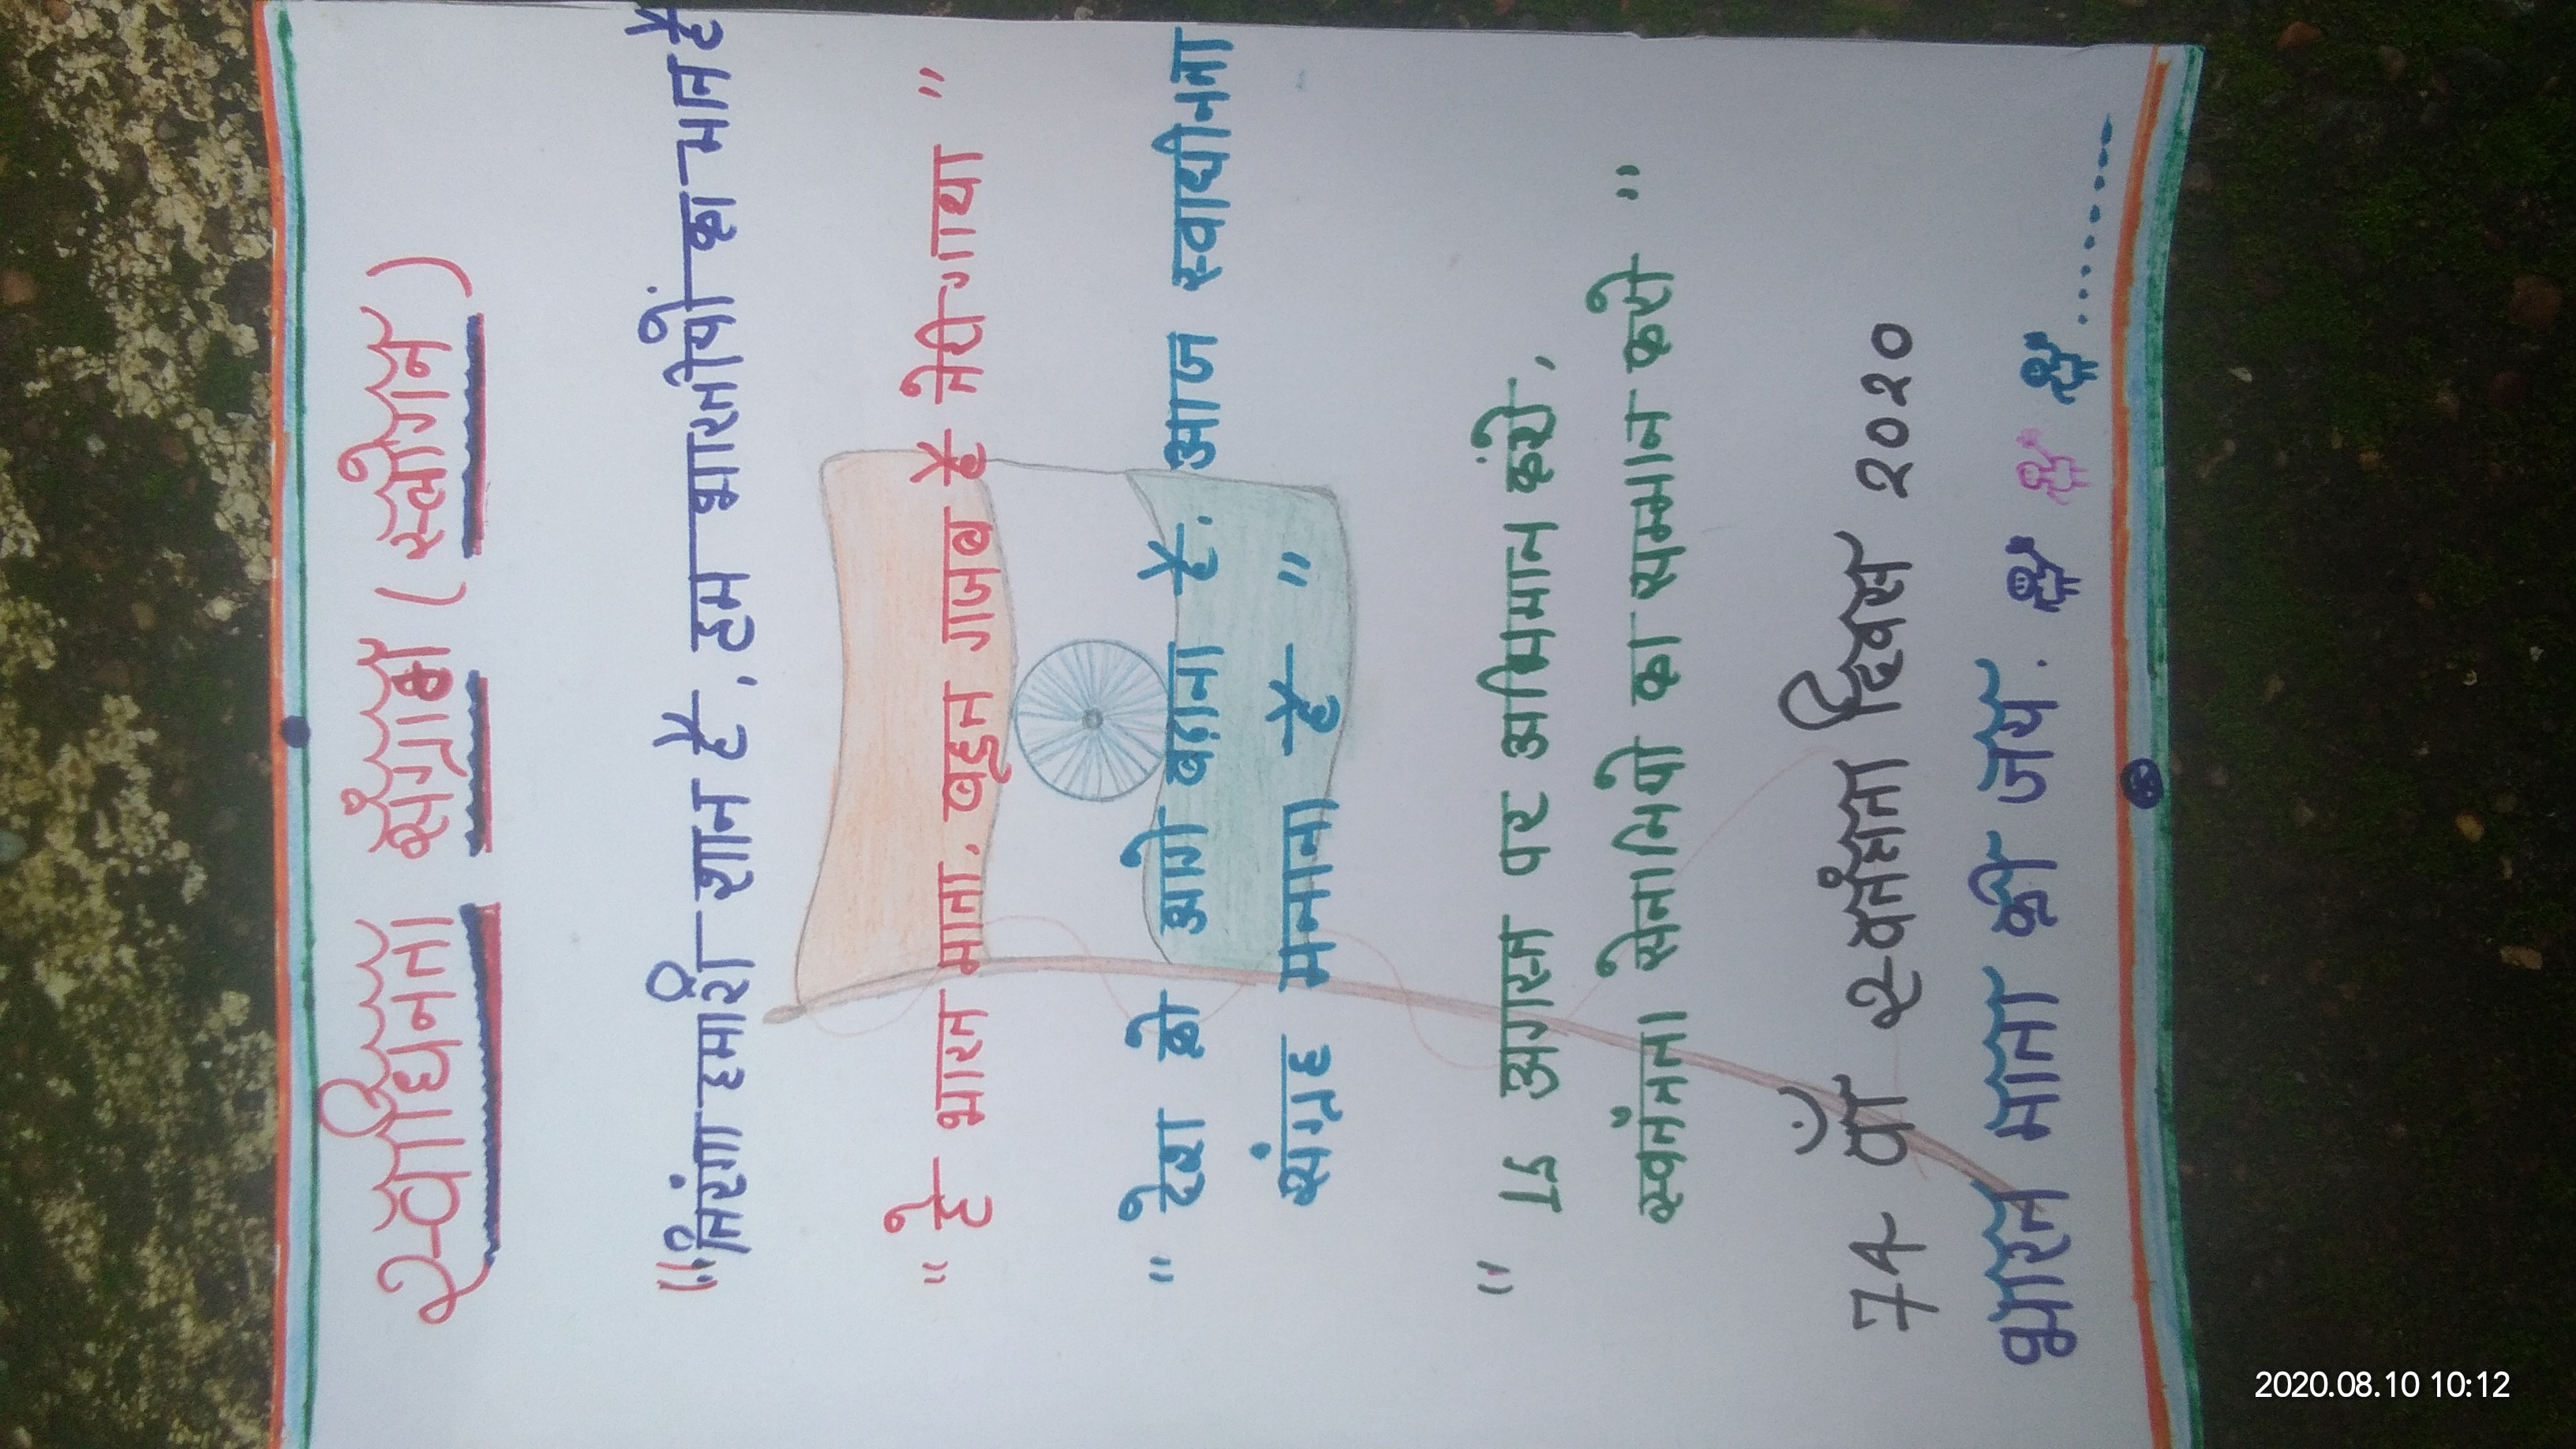 स्वाधिनता संग्राम (स्लोगन)
"तिरंगा हमारी शान है, हम भारतीयों का मान है
"हे भारत माता, बहुत गजब है तेरी गाथा"
"देश को आगे बढ़ाना है. आज स्वाधीनता
संग्रह मनाना है"
"15 अगस्त पर अभिमान करो,
स्वतंत्रता सेनानियो का सम्मान करो"
74 वाँ स्वतंत्रता दिवस २०२०
भारत माता की जय.
2020.08.10 10:12